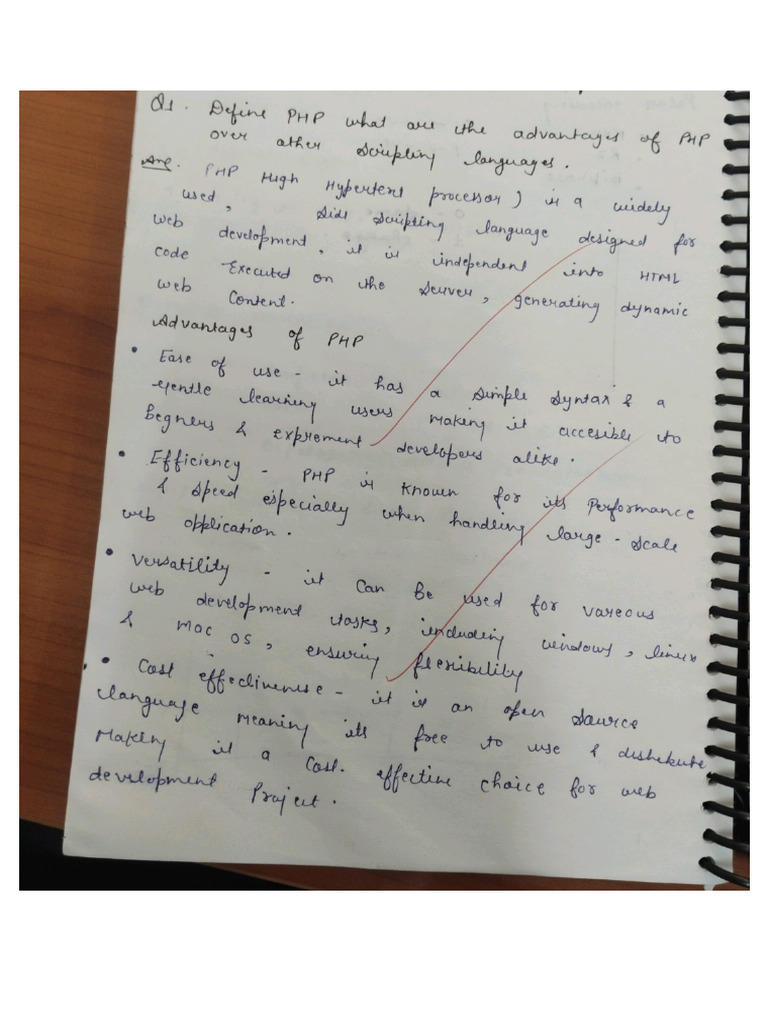 Q1. Define PHP what are the advantages of PHP
over other Scripting languages.
Ans. PHP High Hypertext processor) is a widely
used, Side Scripting language designed for
web development, it is independent into HTML
code Executed on the Server, generating dynamic
web Content.
Advantages of PHP
• Ease of use - it has a simple Syntax & a
gentle learning users making it accesible to
begners & expriement developers alike.
• Efficiency - PHP is known for its Performance
& speed especially when handling large - scale
web application.
• Versatility - it can be used for vareous
web development tasks, including windows, linux
& Mac OS, ensuring flexibility
• Cost effectivenese - it is an open source
language meaning its free to use &
Making it a Cost. effective choice for web
development Project.